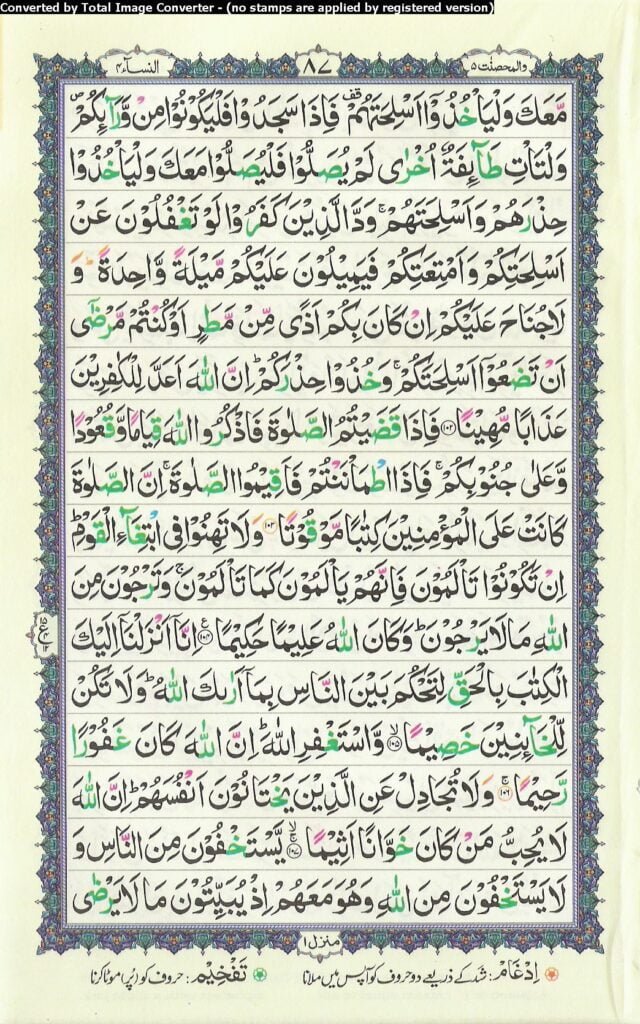 Converted by Total Image Converter - (no stamps are applied by registered version)
والمحصنت ۵ ۸۷ النسآء ۴
مَّعَكَ وَلْيَاْخُذُوْۤا اَسْلِحَتَهُمْ ۫ فَاِذَا سَجَدُوْا فَلْيَكُوْنُوْا مِنْ وَّرَآىِٕكُمْ ۪
وَلْتَاْتِ طَآىِٕفَةٌ اُخْرٰى لَمْ يُصَلُّوْا فَلْيُصَلُّوْا مَعَكَ وَلْيَاْخُذُوْا
حِذْرَهُمْ وَاَسْلِحَتَهُمْ ۚ وَدَّ الَّذِيْنَ كَفَرُوْا لَوْ تَغْفُلُوْنَ عَنْ
اَسْلِحَتِكُمْ وَاَمْتِعَتِكُمْ فَيَمِيْلُوْنَ عَلَيْكُمْ مَّيْلَةً وَّاحِدَةً ؕ وَ
لَا جُنَاحَ عَلَيْكُمْ اِنْ كَانَ بِكُمْ اَذًى مِّنْ مَّطَرٍ اَوْ كُنْتُمْ مَّرْضٰۤى
اَنْ تَضَعُوْۤا اَسْلِحَتَكُمْ ۚ وَخُذُوْا حِذْرَكُمْ ؕ اِنَّ اللّٰهَ اَعَدَّ لِلْكٰفِرِيْنَ
عَذَابًا مُّهِيْنًا ۝۱۰۲ فَاِذَا قَضَيْتُمُ الصَّلٰوةَ فَاذْكُرُوا اللّٰهَ قِيَامًا وَّقُعُوْدًا
وَّعَلٰى جُنُوْبِكُمْ ۚ فَاِذَا اطْمَاْنَنْتُمْ فَاَقِيْمُوا الصَّلٰوةَ ۚ اِنَّ الصَّلٰوةَ
كَانَتْ عَلَى الْمُؤْمِنِيْنَ كِتٰبًا مَّوْقُوْتًا ۝۱۰۳ وَلَا تَهِنُوْا فِى ابْتِغَآءِ الْقَوْمِ ؕ
اِنْ تَكُوْنُوْا تَاْلَمُوْنَ فَاِنَّهُمْ يَاْلَمُوْنَ كَمَا تَاْلَمُوْنَ ۚ وَتَرْجُوْنَ مِنَ
اللّٰهِ مَا لَا يَرْجُوْنَ ؕ وَكَانَ اللّٰهُ عَلِيْمًا حَكِيْمًا ۝۱۰۴ ع اِنَّاۤ اَنْزَلْنَاۤ اِلَيْكَ
الْكِتٰبَ بِالْحَقِّ لِتَحْكُمَ بَيْنَ النَّاسِ بِمَاۤ اَرٰىكَ اللّٰهُ ؕ وَلَا تَكُنْ
لِّلْخَآىِٕنِيْنَ خَصِيْمًا ۝۱۰۵ ۙ وَّاسْتَغْفِرِ اللّٰهَ ؕ اِنَّ اللّٰهَ كَانَ غَفُوْرًا
رَّحِيْمًا ۝۱۰۶ ۚ وَلَا تُجَادِلْ عَنِ الَّذِيْنَ يَخْتَانُوْنَ اَنْفُسَهُمْ ؕ اِنَّ اللّٰهَ
لَا يُحِبُّ مَنْ كَانَ خَوَّانًا اَثِيْمًا ۝۱۰۷ ۚۙ يَّسْتَخْفُوْنَ مِنَ النَّاسِ وَ
لَا يَسْتَخْفُوْنَ مِنَ اللّٰهِ وَهُوَ مَعَهُمْ اِذْ يُبَيِّتُوْنَ مَا لَا يَرْضٰى
منزل ۱
اِدْغَام: شد کے ذریعے دو حروف کو آپس میں ملانا تَفْخِيْم: حروف کو (پُر) موٹا کرنا